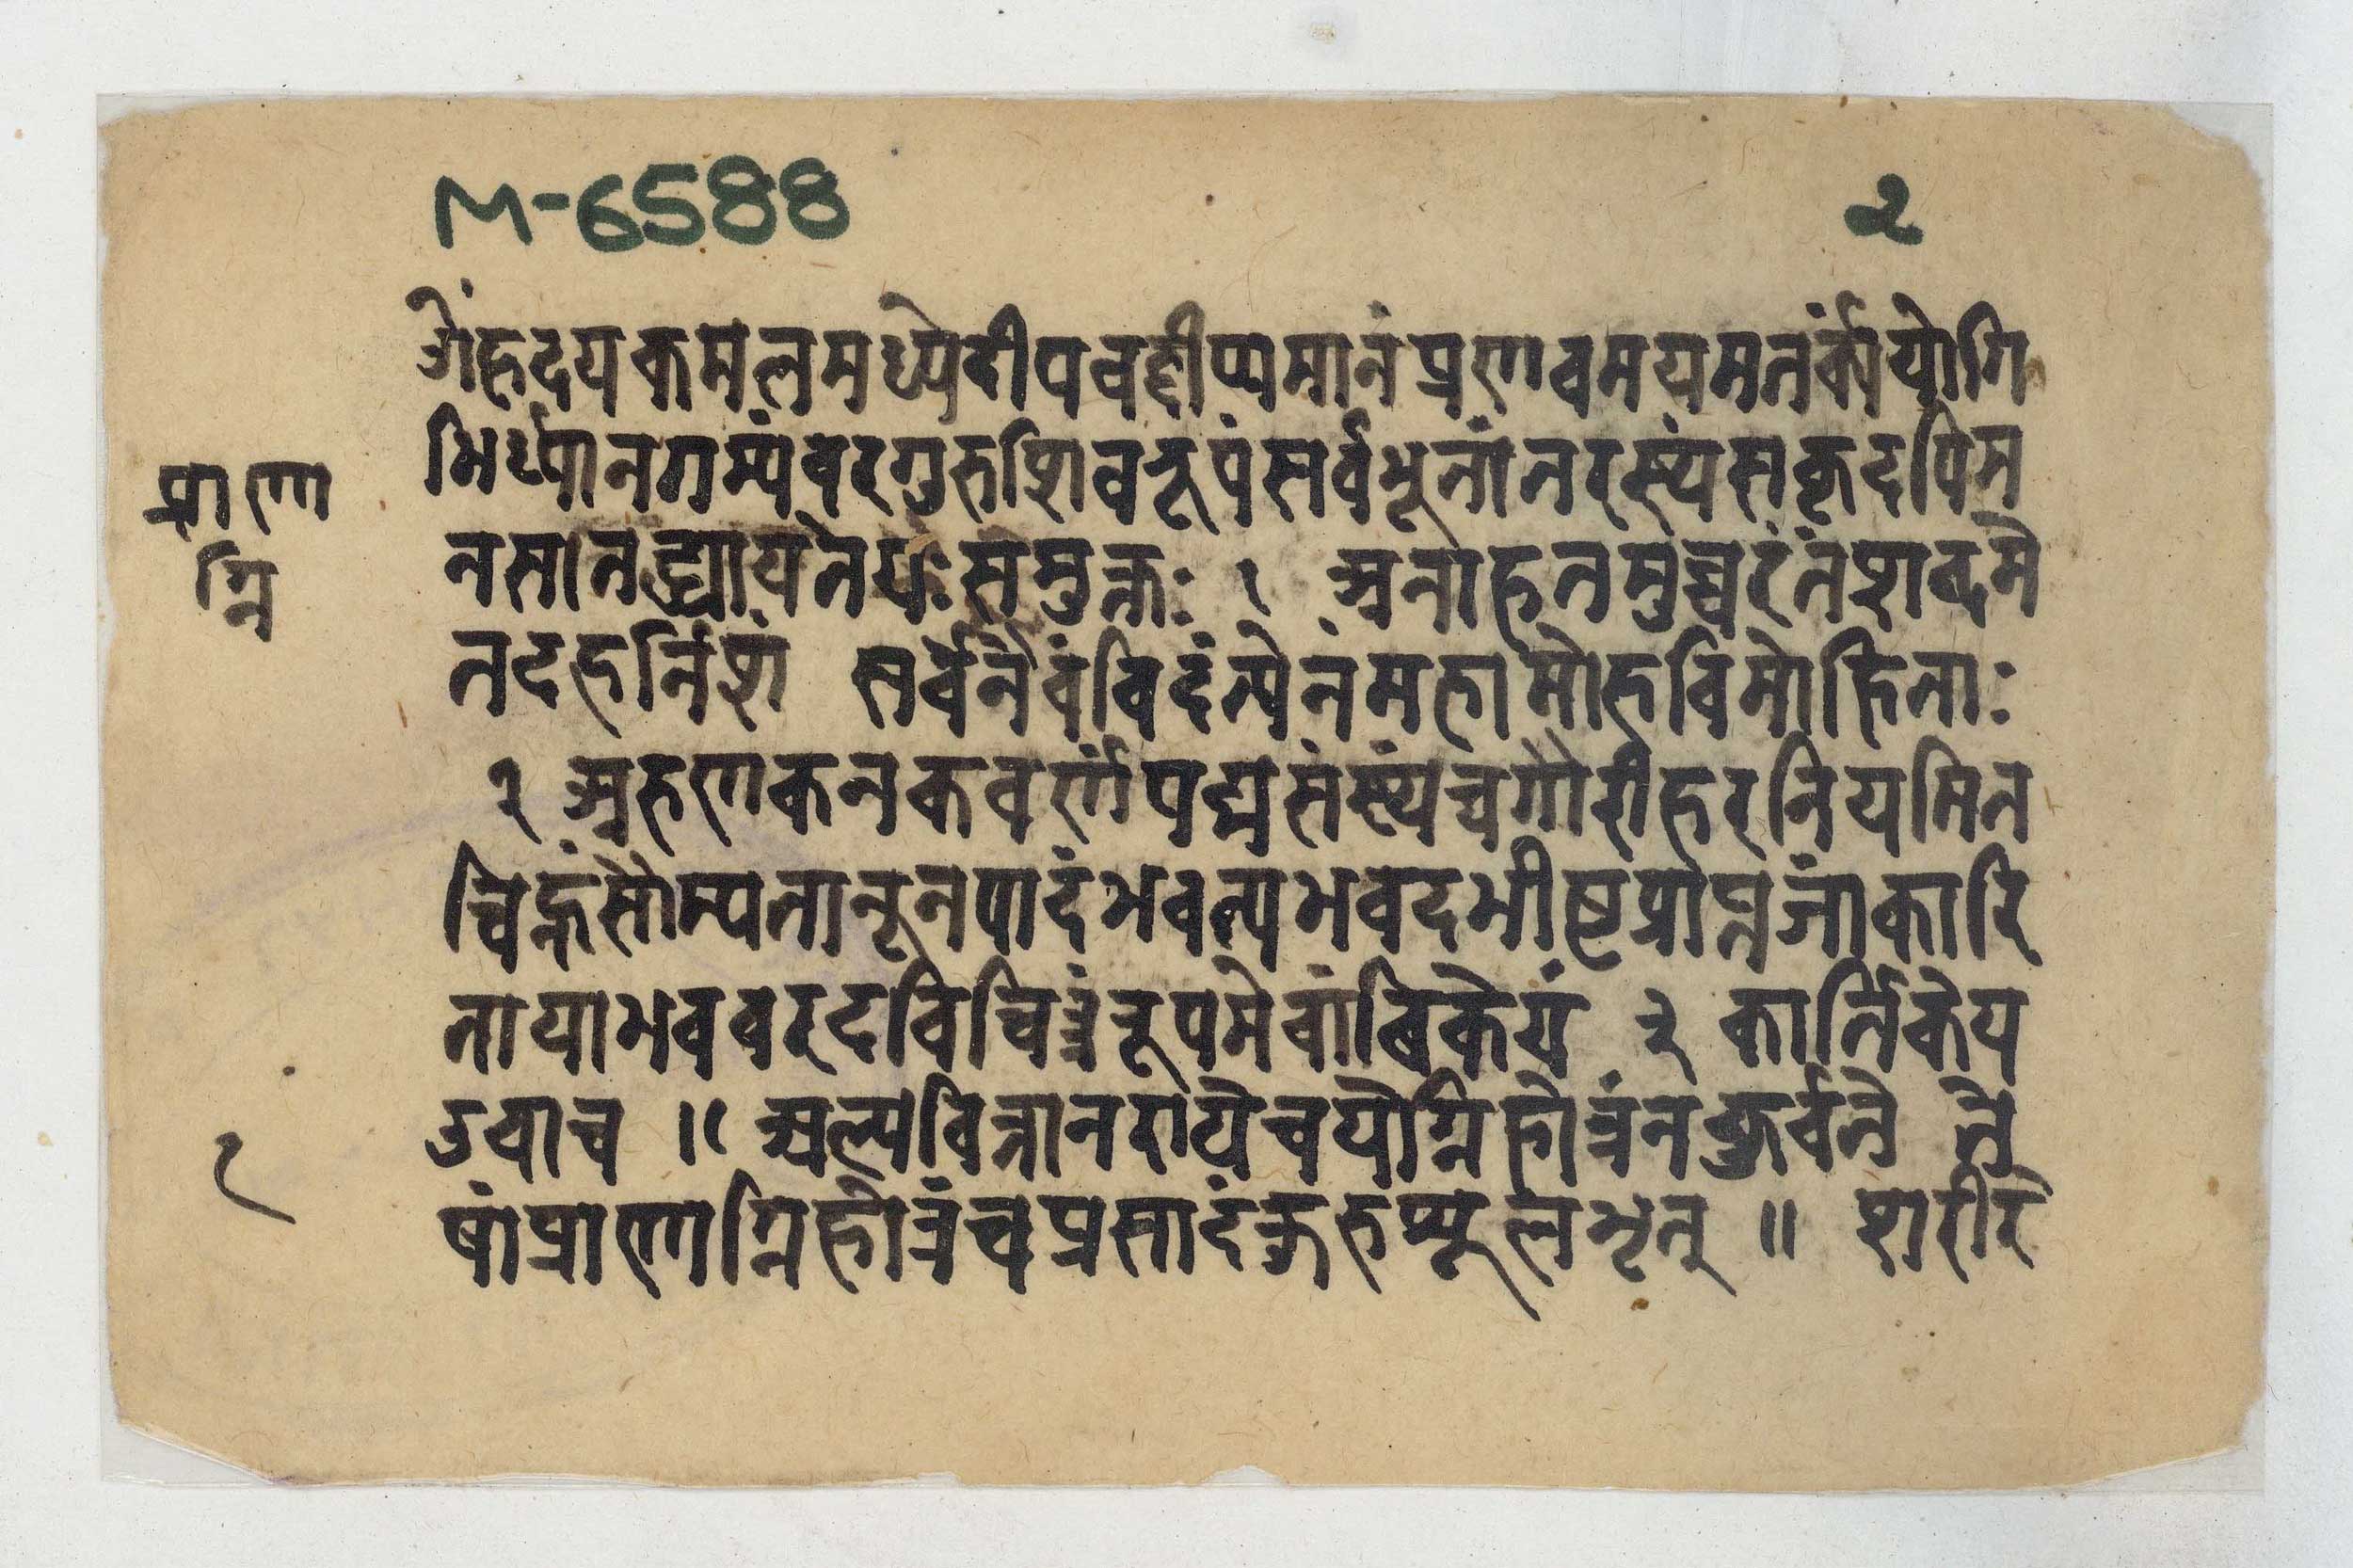 M-6588
२
ॐहृदयकमलमध्येदीपवद्दीप्यमानंप्रणवमयमतर्क्यंयोगि
प्राणा
भिर्ध्यानगम्यंवरगुरुशिवरूपंसर्वभूतांतरस्थंसकृदपिम
ग्नि
नसातद्ध्यायतेयःसमुक्तः १ अनाहतमुच्चरंतंशब्दमे
तदहर्निशं सर्वेनैवंविदंत्येनंमहामोहविमोहिताः
२ अरुणकनकवर्णंपद्मसंस्थंचगौरीहरनियमित
चिह्नंसौम्यतानूनपादंभवत्यभवदभीष्टंप्राप्नजांकारि
तायाभववरदविचित्रंरूपमेवांबिकेयं ३ कार्तिकेय
उवाच ॥ अल्पवित्तानरायेचयेग्निहोत्रंनकुर्वते ते
१
षांप्राणाग्निहोत्रंचप्रसादंकुरुप्यूलभृत् ॥ शरीर